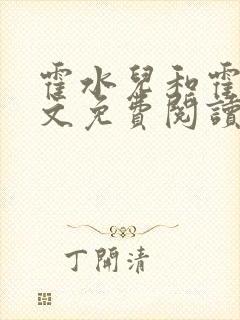 霍水兒和霍
文免費閱讀
丁開清